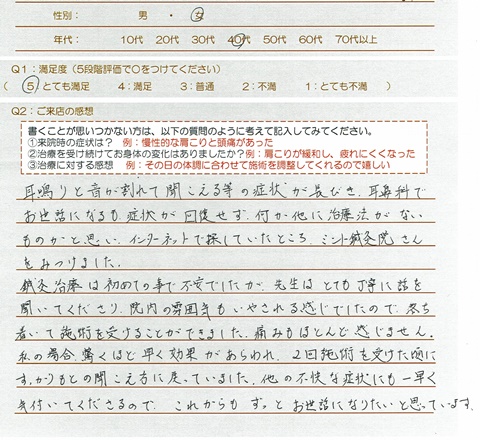 性別： 男 ・ 女
年代： 10代 20代 30代 40代 50代 60代 70代以上
Q1：満足度（5段階評価で○をつけてください）
（ 5：とても満足 4：満足 3：普通 2：不満 1：とても不満 ）
Q2：ご来店の感想
書くことが思いつかない方は、以下の質問のように考えて記入してみてください。
①来院時の症状は？ 例：慢性的な肩こりと頭痛があった
②治療を受け続けてお身体の変化はありましたか？例：肩こりが緩和し、疲れにくくなった
③治療に対する感想 例：その日の体調に合わせて施術を調整してくれるので嬉しい
耳鳴りと音が割れて聞こえる等の症状が長びき、耳鼻科で
お世話になるも、症状が回復せず、何か他に治療法がない
ものかと思い、インターネットで探していたところ、ミント鍼灸院さん
をみつけました。
鍼灸治療は初めての事で不安でしたが、先生はとても丁寧に話を
聞いてくださり、院内の雰囲気もいやされる感じでしたので、落ち
着いて施術を受けることができました。痛みもほとんど感じません。
私の場合、驚くほど早く効果があらわれ、2回施術を受けた頃に
すっかりもとの聞こえ方に戻っていました。他の不快な症状にも一早く
気付いてくださるので、これからもずっとお世話になりたいと思っています。